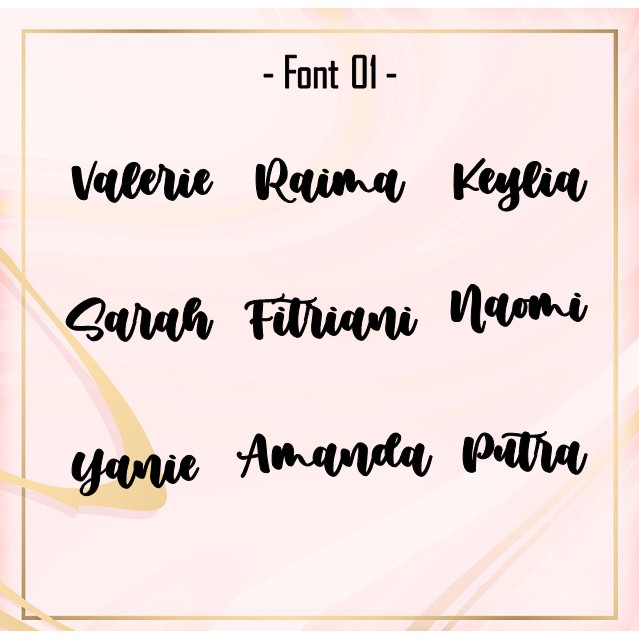 - Font 01 -
Valerie Raima Keylia
Sarah Fitriani Naomi
Yanie Amanda Putra